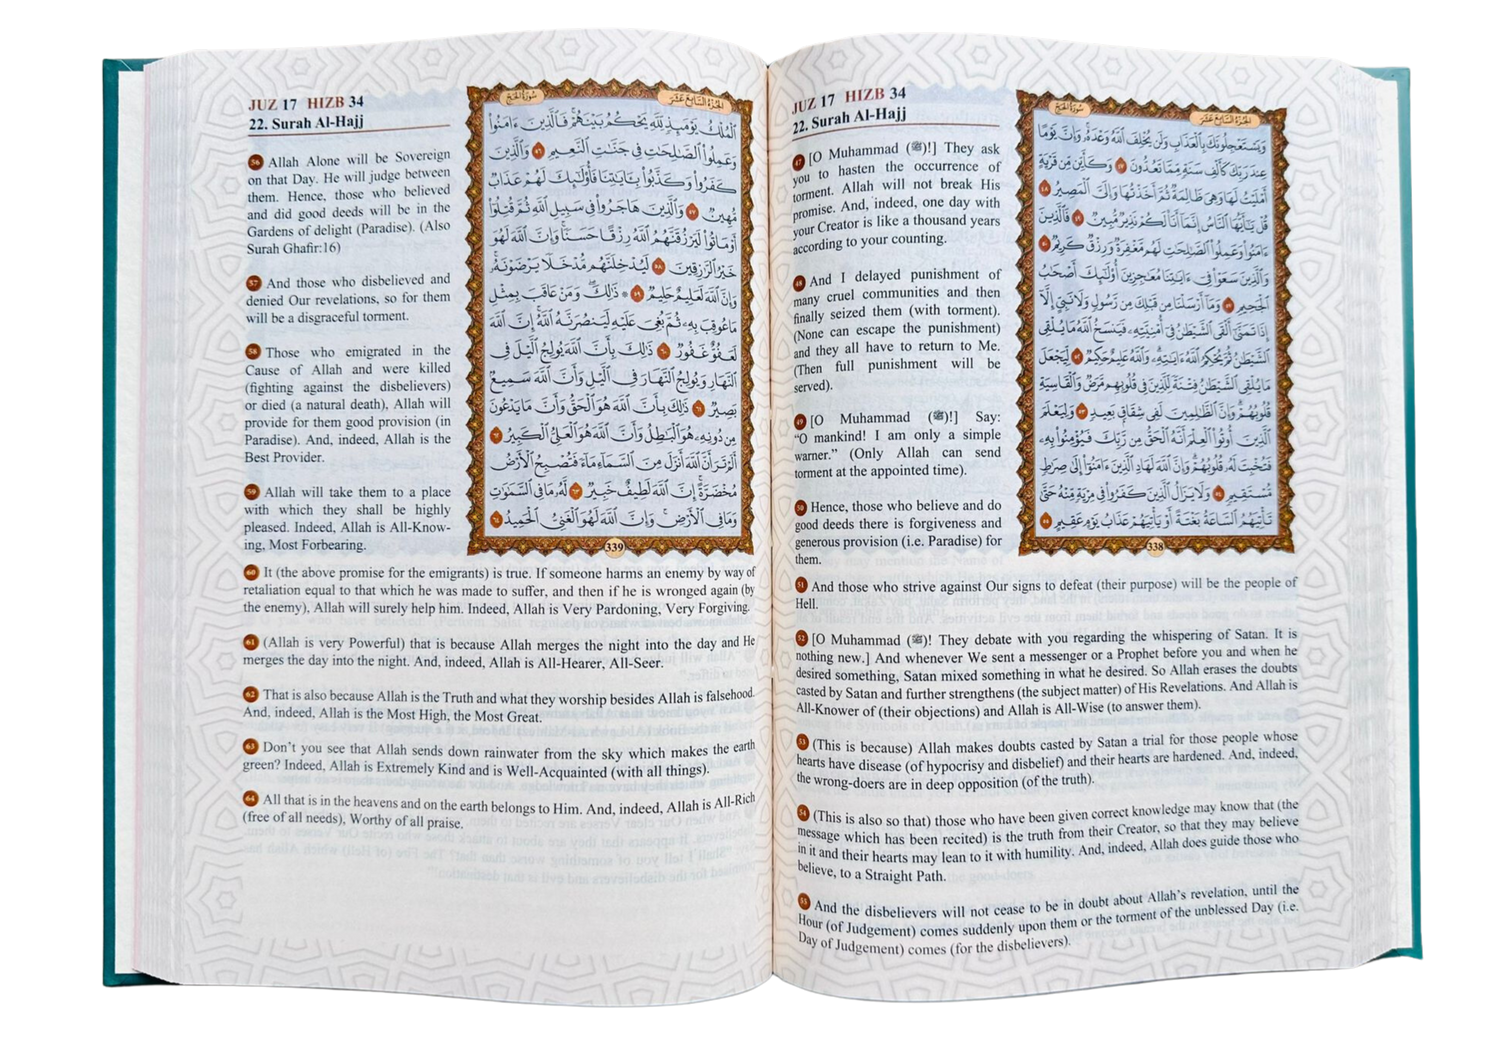 JUZ 17 HIZB 34
22. Surah Al-Hajj
47 [O Muhammad (ﷺ)!] They ask
you to hasten the occurrence of
torment. Allah will not break His
promise. And, indeed, one day with
your Creator is like a thousand years
according to your counting.
48 And I delayed punishment of
many cruel communities and then
finally seized them (with torment).
(None can escape the punishment)
and they all have to return to Me.
(Then full punishment will be
served).
49 [O Muhammad (ﷺ)!] Say:
“O mankind! I am only a simple
warner.” (Only Allah can send
torment at the appointed time).
50 Hence, those who believe and do
good deeds there is forgiveness and
generous provision (i.e. Paradise) for
them.
الجزء السابع عشر
سورة الحج
وَيَسْتَعْجِلُونَكَ بِٱلْعَذَابِ وَلَن يُخْلِفَ ٱللَّهُ وَعْدَهُۥ وَإِنَّ يَوْمًا
عِندَ رَبِّكَ كَأَلْفِ سَنَةٍ مِّمَّا تَعُدُّونَ ٤٧ وَكَأَيِّن مِّن قَرْيَةٍ
أَمْلَيْتُ لَهَا وَهِىَ ظَالِمَةٌ ثُمَّ أَخَذْتُهَا وَإِلَىَّ ٱلْمَصِيرُ ٤٨
قُلْ يَٰٓأَيُّهَا ٱلنَّاسُ إِنَّمَآ أَنَا۠ لَكُمْ نَذِيرٌ مُّبِينٌ ٤٩ فَٱلَّذِينَ
ءَامَنُوا۟ وَعَمِلُوا۟ ٱلصَّٰلِحَٰتِ لَهُم مَّغْفِرَةٌ وَرِزْقٌ كَرِيمٌ ٥٠
وَٱلَّذِينَ سَعَوْا۟ فِىٓ ءَايَٰتِنَا مُعَٰجِزِينَ أُو۟لَٰٓئِكَ أَصْحَٰبُ
ٱلْجَحِيمِ ٥١ وَمَآ أَرْسَلْنَا مِن قَبْلِكَ مِن رَّسُولٍ وَلَا نَبِىٍّ إِلَّآ
إِذَا تَمَنَّىٰٓ أَلْقَى ٱلشَّيْطَٰنُ فِىٓ أُمْنِيَّتِهِۦ فَيَنسَخُ ٱللَّهُ مَا يُلْقِى
ٱلشَّيْطَٰنُ ثُمَّ يُحْكِمُ ٱللَّهُ ءَايَٰتِهِۦ وَٱللَّهُ عَلِيمٌ حَكِيمٌ ٥٢ لِّيَجْعَلَ
مَا يُلْقِى ٱلشَّيْطَٰنُ فِتْنَةً لِّلَّذِينَ فِى قُلُوبِهِم مَّرَضٌ وَٱلْقَاسِيَةِ
قُلُوبُهُمْ وَإِنَّ ٱلظَّٰلِمِينَ لَفِى شِقَاقٍۭ بَعِيدٍ ٥٣ وَلِيَعْلَمَ
ٱلَّذِينَ أُوتُوا۟ ٱلْعِلْمَ أَنَّهُ ٱلْحَقُّ مِن رَّبِّكَ فَيُؤْمِنُوا۟ بِهِۦ
فَتُخْبِتَ لَهُۥ قُلُوبُهُمْ وَإِنَّ ٱللَّهَ لَهَادِ ٱلَّذِينَ ءَامَنُوٓا۟ إِلَىٰ صِرَٰطٍ
مُّسْتَقِيمٍ ٥٤ وَلَا يَزَالُ ٱلَّذِينَ كَفَرُوا۟ فِى مِرْيَةٍ مِّنْهُ حَتَّىٰ
تَأْتِيَهُمُ ٱلسَّاعَةُ بَغْتَةً أَوْ يَأْتِيَهُمْ عَذَابُ يَوْمٍ عَقِيمٍ ٥٥
338
51 And those who strive against Our signs to defeat (their purpose) will be the people of
Hell.
52 [O Muhammad (ﷺ)! They debate with you regarding the whispering of Satan. It is
nothing new.] And whenever We sent a messenger or a Prophet before you and when he
desired something, Satan mixed something in what he desired. So Allah erases the doubts
casted by Satan and further strengthens (the subject matter) of His Revelations. And Allah is
All-Knower of (their objections) and Allah is All-Wise (to answer them).
53 (This is because) Allah makes doubts casted by Satan a trial for those people whose
hearts have disease (of hypocrisy and disbelief) and their hearts are hardened. And, indeed,
the wrong-doers are in deep opposition (of the truth).
54 (This is also so that) those who have been given correct knowledge may know that (the
message which has been recited) is the truth from their Creator, so that they may believe
in it and their hearts may lean to it with humility. And, indeed, Allah does guide those who
believe, to a Straight Path.
55 And the disbelievers will not cease to be in doubt about Allah’s revelation, until the
Hour (of Judgement) comes suddenly upon them or the torment of the unblessed Day (i.e.
Day of Judgement) comes (for the disbelievers).
JUZ 17 HIZB 34
22. Surah Al-Hajj
56 Allah Alone will be Sovereign
on that Day. He will judge between
them. Hence, those who believed
and did good deeds will be in the
Gardens of delight (Paradise). (Also
Surah Ghafir:16)
57 And those who disbelieved and
denied Our revelations, so for them
will be a disgraceful torment.
58 Those who emigrated in the
Cause of Allah and were killed
(fighting against the disbelievers)
or died (a natural death), Allah will
provide for them good provision (in
Paradise). And, indeed, Allah is the
Best Provider.
59 Allah will take them to a place
with which they shall be highly
pleased. Indeed, Allah is All-Know-
ing, Most Forbearing.
الجزء السابع عشر
سورة الحج
ٱلْمُلْكُ يَوْمَئِذٍ لِّلَّهِ يَحْكُمُ بَيْنَهُمْ فَٱلَّذِينَ ءَامَنُوا۟
وَعَمِلُوا۟ ٱلصَّٰلِحَٰتِ فِى جَنَّٰتِ ٱلنَّعِيمِ ٥٦ وَٱلَّذِينَ
كَفَرُوا۟ وَكَذَّبُوا۟ بِـَٔايَٰتِنَا فَأُو۟لَٰٓئِكَ لَهُمْ عَذَابٌ
مُّهِينٌ ٥٧ وَٱلَّذِينَ هَاجَرُوا۟ فِى سَبِيلِ ٱللَّهِ ثُمَّ قُتِلُوٓا۟
أَوْ مَاتُوا۟ لَيَرْزُقَنَّهُمُ ٱللَّهُ رِزْقًا حَسَنًا وَإِنَّ ٱللَّهَ لَهُوَ
خَيْرُ ٱلرَّٰزِقِينَ ٥٨ لَيُدْخِلَنَّهُم مُّدْخَلًا يَرْضَوْنَهُۥ
وَإِنَّ ٱللَّهَ لَعَلِيمٌ حَلِيمٌ ٥٩ ۞ ذَٰلِكَ وَمَنْ عَاقَبَ بِمِثْلِ
مَا عُوقِبَ بِهِۦ ثُمَّ بُغِىَ عَلَيْهِ لَيَنصُرَنَّهُ ٱللَّهُ إِنَّ ٱللَّهَ
لَعَفُوٌّ غَفُورٌ ٦٠ ذَٰلِكَ بِأَنَّ ٱللَّهَ يُولِجُ ٱلَّيْلَ فِى
ٱلنَّهَارِ وَيُولِجُ ٱلنَّهَارَ فِى ٱلَّيْلِ وَأَنَّ ٱللَّهَ سَمِيعٌۢ
بَصِيرٌ ٦١ ذَٰلِكَ بِأَنَّ ٱللَّهَ هُوَ ٱلْحَقُّ وَأَنَّ مَا يَدْعُونَ
مِن دُونِهِۦ هُوَ ٱلْبَٰطِلُ وَأَنَّ ٱللَّهَ هُوَ ٱلْعَلِىُّ ٱلْكَبِيرُ ٦٢
أَلَمْ تَرَ أَنَّ ٱللَّهَ أَنزَلَ مِنَ ٱلسَّمَآءِ مَآءً فَتُصْبِحُ ٱلْأَرْضُ
مُخْضَرَّةً إِنَّ ٱللَّهَ لَطِيفٌ خَبِيرٌ ٦٣ لَّهُۥ مَا فِى ٱلسَّمَٰوَٰتِ
وَمَا فِى ٱلْأَرْضِ وَإِنَّ ٱللَّهَ لَهُوَ ٱلْغَنِىُّ ٱلْحَمِيدُ ٦٤
339
60 It (the above promise for the emigrants) is true. If someone harms an enemy by way of
retaliation equal to that which he was made to suffer, and then if he is wronged again (by
the enemy), Allah will surely help him. Indeed, Allah is Very Pardoning, Very Forgiving.
61 (Allah is very Powerful) that is because Allah merges the night into the day and He
merges the day into the night. And, indeed, Allah is All-Hearer, All-Seer.
62 That is also because Allah is the Truth and what they worship besides Allah is falsehood.
And, indeed, Allah is the Most High, the Most Great.
63 Don’t you see that Allah sends down rainwater from the sky which makes the earth
green? Indeed, Allah is Extremely Kind and is Well-Acquainted (with all things).
64 All that is in the heavens and on the earth belongs to Him. And, indeed, Allah is All-Rich
(free of all needs), Worthy of all praise.